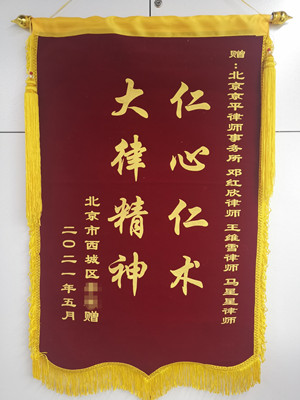 赠：北京京平律师事务所 邓红欣律师 王维雪律师 马星星律师
仁心仁术
大律精神
北京市西城区 赠
二〇二一年五月